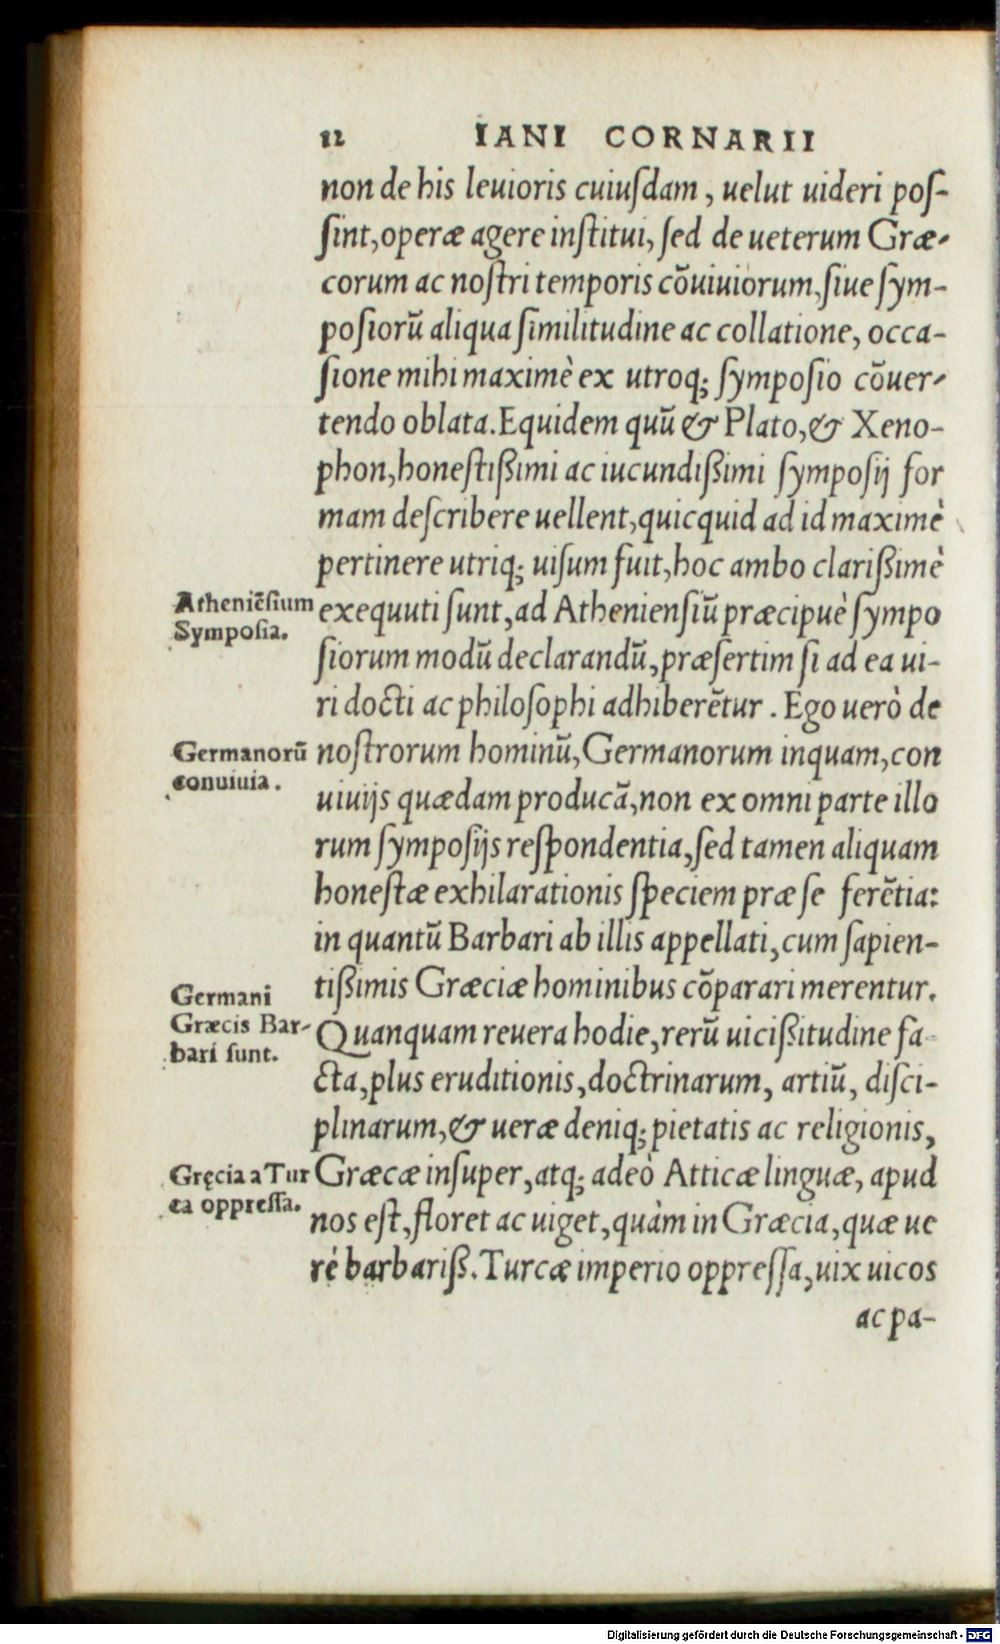 12 IANI CORNARII
non de his leuioris cuiuſdam, uelut uideri poſ-
ſint, operæ agere inſtitui, ſed de ueterum Græ-
corum ac noſtri temporis cōuiuiorum, ſiue ſym-
poſiorū aliqua ſimilitudine ac collatione, occa-
ſione mihi maximè ex utroq; ſympoſio cōuer-
tendo oblata. Equidem quū & Plato, & Xeno-
phon, honeſtißimi ac iucundißimi ſympoſij for
mam deſcribere uellent, quicquid ad id maximè
pertinere utriq; uiſum fuit, hoc ambo clarißimè
Atheniēſium
Sympoſia.
exequuti ſunt, ad Athenienſiū præcipuè ſympo
ſiorum modū declarandū, præſertim ſi ad ea ui-
ri docti ac philoſophi adhiberētur. Ego uerò de
Germanorū
conuiuia.
noſtrorum hominū, Germanorum inquam, con
uiuijs quædam producā, non ex omni parte illo
rum ſympoſijs reſpondentia, ſed tamen aliquam
honeſtæ exhilarationis ſpeciem præ ſe ferētia:
in quantū Barbari ab illis appellati, cum ſapien-
tißimis Græciæ hominibus cōparari merentur.
Germani
Græcis Bar-
bari ſunt.
Quanquam reuera hodie, rerū uicißitudine fa-
cta, plus eruditionis, doctrinarum, artiū, diſci-
plinarum, & ueræ deniq; pietatis ac religionis,
Gręcia a Tur
ca oppreſſa.
Græcæ inſuper, atq; adeò Atticæ linguæ, apud
nos eſt, floret ac uiget, quàm in Græcia, quæ ue
rè barbariß. Turcæ imperio oppreſſa, uix uicos
ac pa-
Digitalisierung gefördert durch die Deutsche Forschungsgemeinschaft - DFG